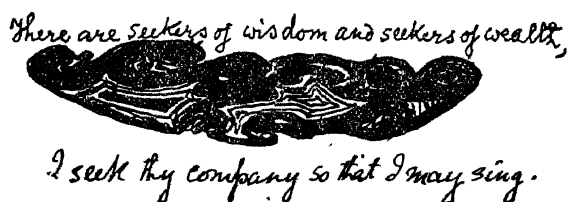 There are seekers of wisdom and seekers of wealth,
I seek thy company so that I may sing.